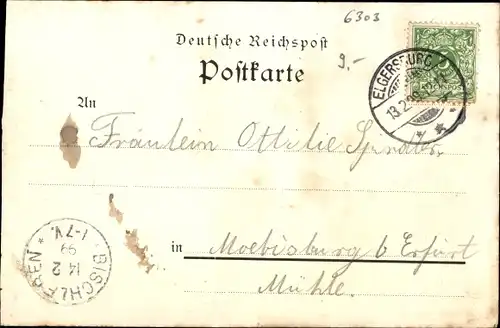 6303
Deutsche Reichspost
9.-
Postkarte
ELGERSBURG
13.2.99
An
Fräulein Ottilie
BISCHLEBEN
14 2
99
1-7V.
in Moebisburg b Erfurt
Mühle.